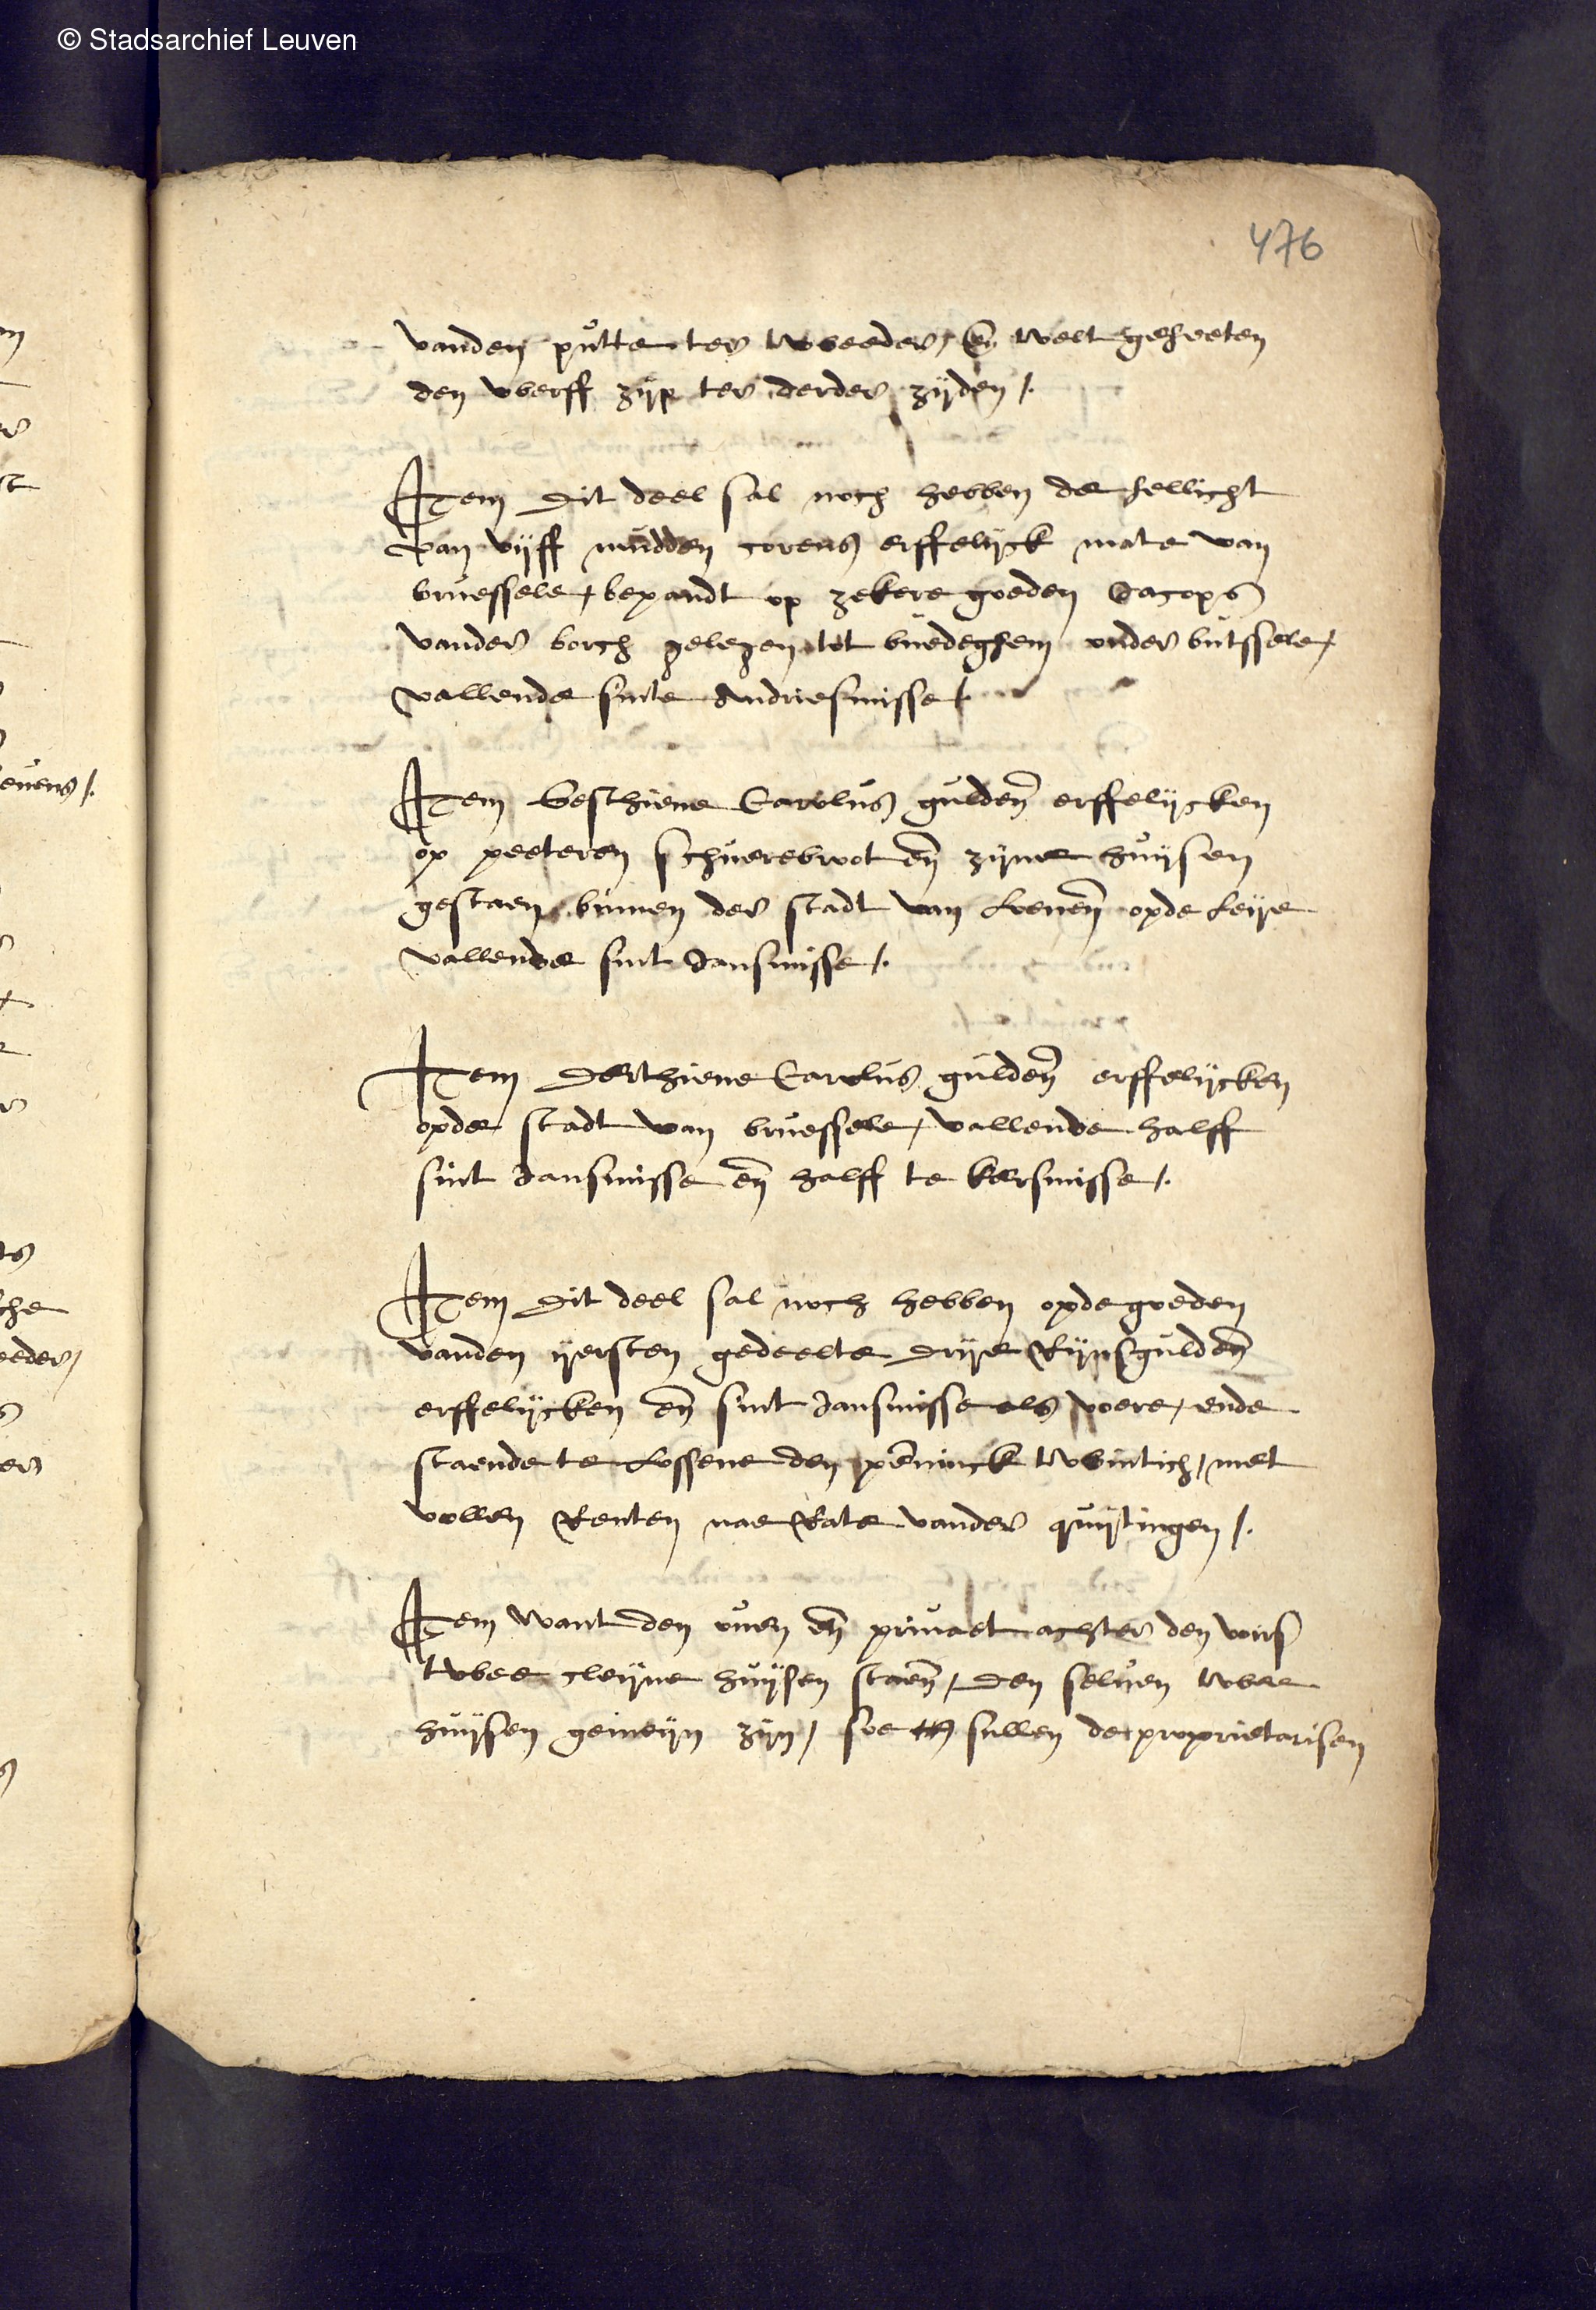 © Stadsarchief Leuven
476
vanden putte ter tweeder, en̄ twelt geheeten
den werff zijp ter derder zijden /.
Item dit deel sal noch hebben de hellicht
van vijff mudden corens erffelijck mate van
bruessele, bepandt op zekere goeden Jacops
vander borch gelegen tot buedeghem onder butssele,
vallende sinte Andriesmisse /.
Item sesthiene Carolus gulden̄ erffelijcken
op peeteren schuerebroot en̄ zijne huijsen
gestaen binnen der stadt van Loeuen̄ opde leije
vallende sint Jansmisse /.
Item derthiene Carolus gulden̄ erffelijcken
opde stadt van bruessele, vallende halff
sint Jansmisse en̄ halff te kersmisse /.
Item dit deel sal noch hebben opde goeden
vanden ijersten gedeelte drije Rijnsgulden̄
erffelijcken en̄ sint Jansmisse als voere, ende
staende te lossene den pēninck twintich, met
vollen Renten nae Rate vander quijtingen /.
Item want den ouen en̄ priuaet achter den voirs
twee cleijne huijsen staen̄, den seluen twee
huijsen gemeijn zijn, soe sullen de proprietarisen